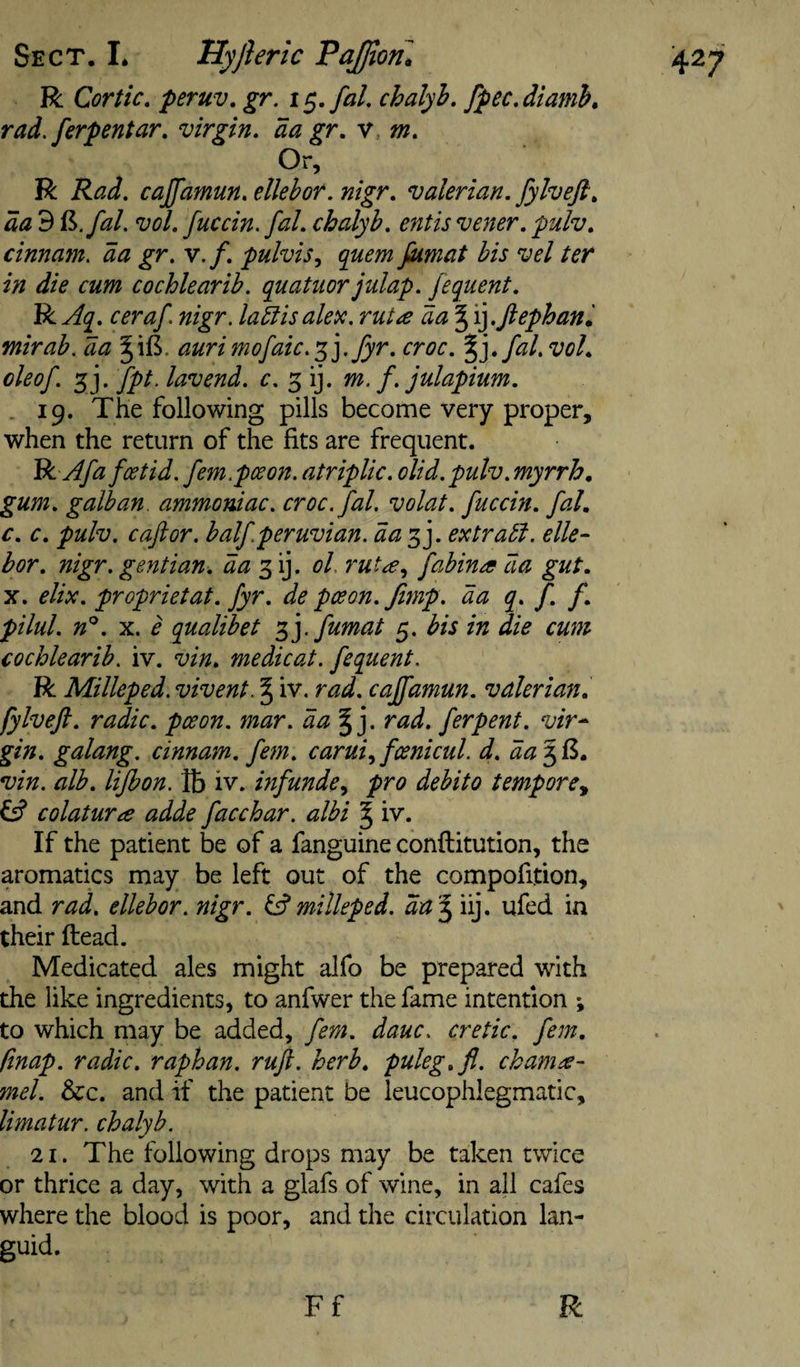 SECT. I. Hyſteric Paſſion. 427
℞ Cortic. peruv. gr. 15. ſal. chalyb. ſpec. diamb.
rad. ſerpentar. virgin. āa gr. v. m.
Or,
℞ Rad. caſſamun. ellebor. nigr. valerian. ſylveſt.
āa ℈ ß. ſal. vol. ſuccin. ſal. chalyb. entis vener. pulv.
cinnam. āa gr. v. f. pulvis, quem ſumat bis vel ter
in die cum cochlearib. quatuor julap. ſequent.
℞ Aq. ceraſ. nigr. lactis alex. rutæ āa ℥ ij. ſtephan.
mirab. āa ℥iß. auri moſaic. ʒj. ſyr. croc. ℥j. ſal. vol.
oleoſ. ʒj. ſpt. lavend. c. ʒ ij. m. f. julapium.
19. The following pills become very proper,
when the return of the fits are frequent.
℞ Aſa fœtid. ſem. pœon. atriplic. olid. pulv. myrrh.
gum. galban. ammoniac. croc. ſal. volat. ſuccin. ſal.
c. c. pulv. caſtor. balſ. peruvian. āa ʒj. extract. elle-
bor. nigr. gentian. āa ʒ ij. ol. rutæ, ſabinæ āa gut.
x. elix. proprietat. ſyr. de pœon. ſimp. āa q. ſ. f.
pilul. n°. x. è qualibet ʒj. ſumat 5. bis in die cum
cochlearib. iv. vin. medicat. ſequent.
℞ Milleped. vivent. ℥ iv. rad. caſſamun. valerian.
ſylveſt. radic. pœon. mar. āa ℥ j. rad. ſerpent. vir-
gin. galang. cinnam. ſem. carui, fœnicul. d. āa ℥ ß.
vin. alb. liſbon. ℔ iv. infunde, pro debito tempore,
& colaturæ adde ſacchar. albi ℥ iv.
If the patient be of a ſanguine conſtitution, the
aromatics may be left out of the compoſition,
and rad. ellebor. nigr. & milleped. āa ℥ iij. uſed in
their ſtead.
Medicated ales might alſo be prepared with
the like ingredients, to anſwer the ſame intention ;
to which may be added, ſem. dauc. cretic. ſem.
ſinap. radic. raphan. ruſt. herb. puleg. fl. chamæ-
mel. &c. and if the patient be leucophlegmatic,
limatur. chalyb.
21. The following drops may be taken twice
or thrice a day, with a glaſs of wine, in all caſes
where the blood is poor, and the circulation lan-
guid.
F f ℞